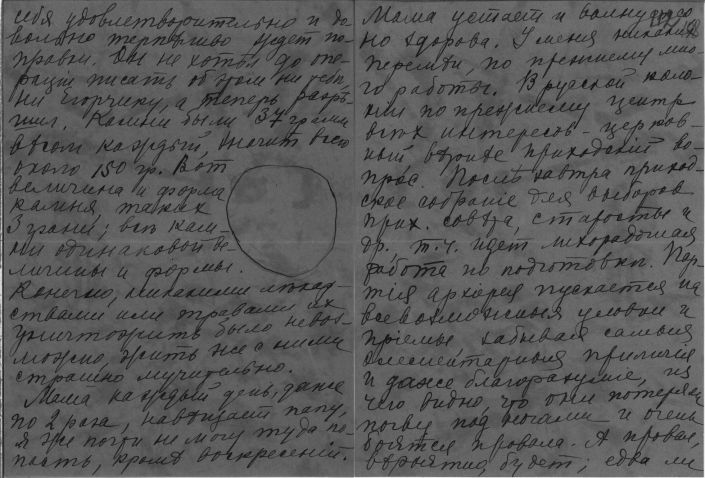 себя удовлетворительно и до-
вольно терпеливо ждет по-
правки. Он не хотел до опе-
рации писать об этом ни тебе,
ни Егорчику, а теперь разре-
шил. Камни были 37 грамм
весом каждый, значит всего
около 150 гр. Вот
величина и форма
камня таких
3 грани; все кам-
ни одинаковой ве-
личины и формы.
Конечно, никакими лекар-
ствами или травами их
уничтожить было невоз-
можно, жить же с ними
страшно мучительно.
Мама каждый день, даже
по 2 раза, навещает папу,
я же почти не могу туда по-
пасть, кроме воскресений.
Мама устает и
но здорова. У меня никаких
перемен, по прежнему мно-
го работы. В русской коло-
нии по прежнему центр
всех интересов - церков-
ный вернее приходский во-
прос. После завтра приход-
ское собрание для выборов
прих. совета, старосты и
др. т.ч. идет лихорадочная
работа по подготовки. Пар-
тія архіерея пускается на
всевозможныя уловки и
пріемы забывая самыя
элементарныя приличія
и даже благоразуміе, из
чего видно, что они потеряли
почву под ногами и очень
боятся провала. А провал,
вероятно, будет, едва ли